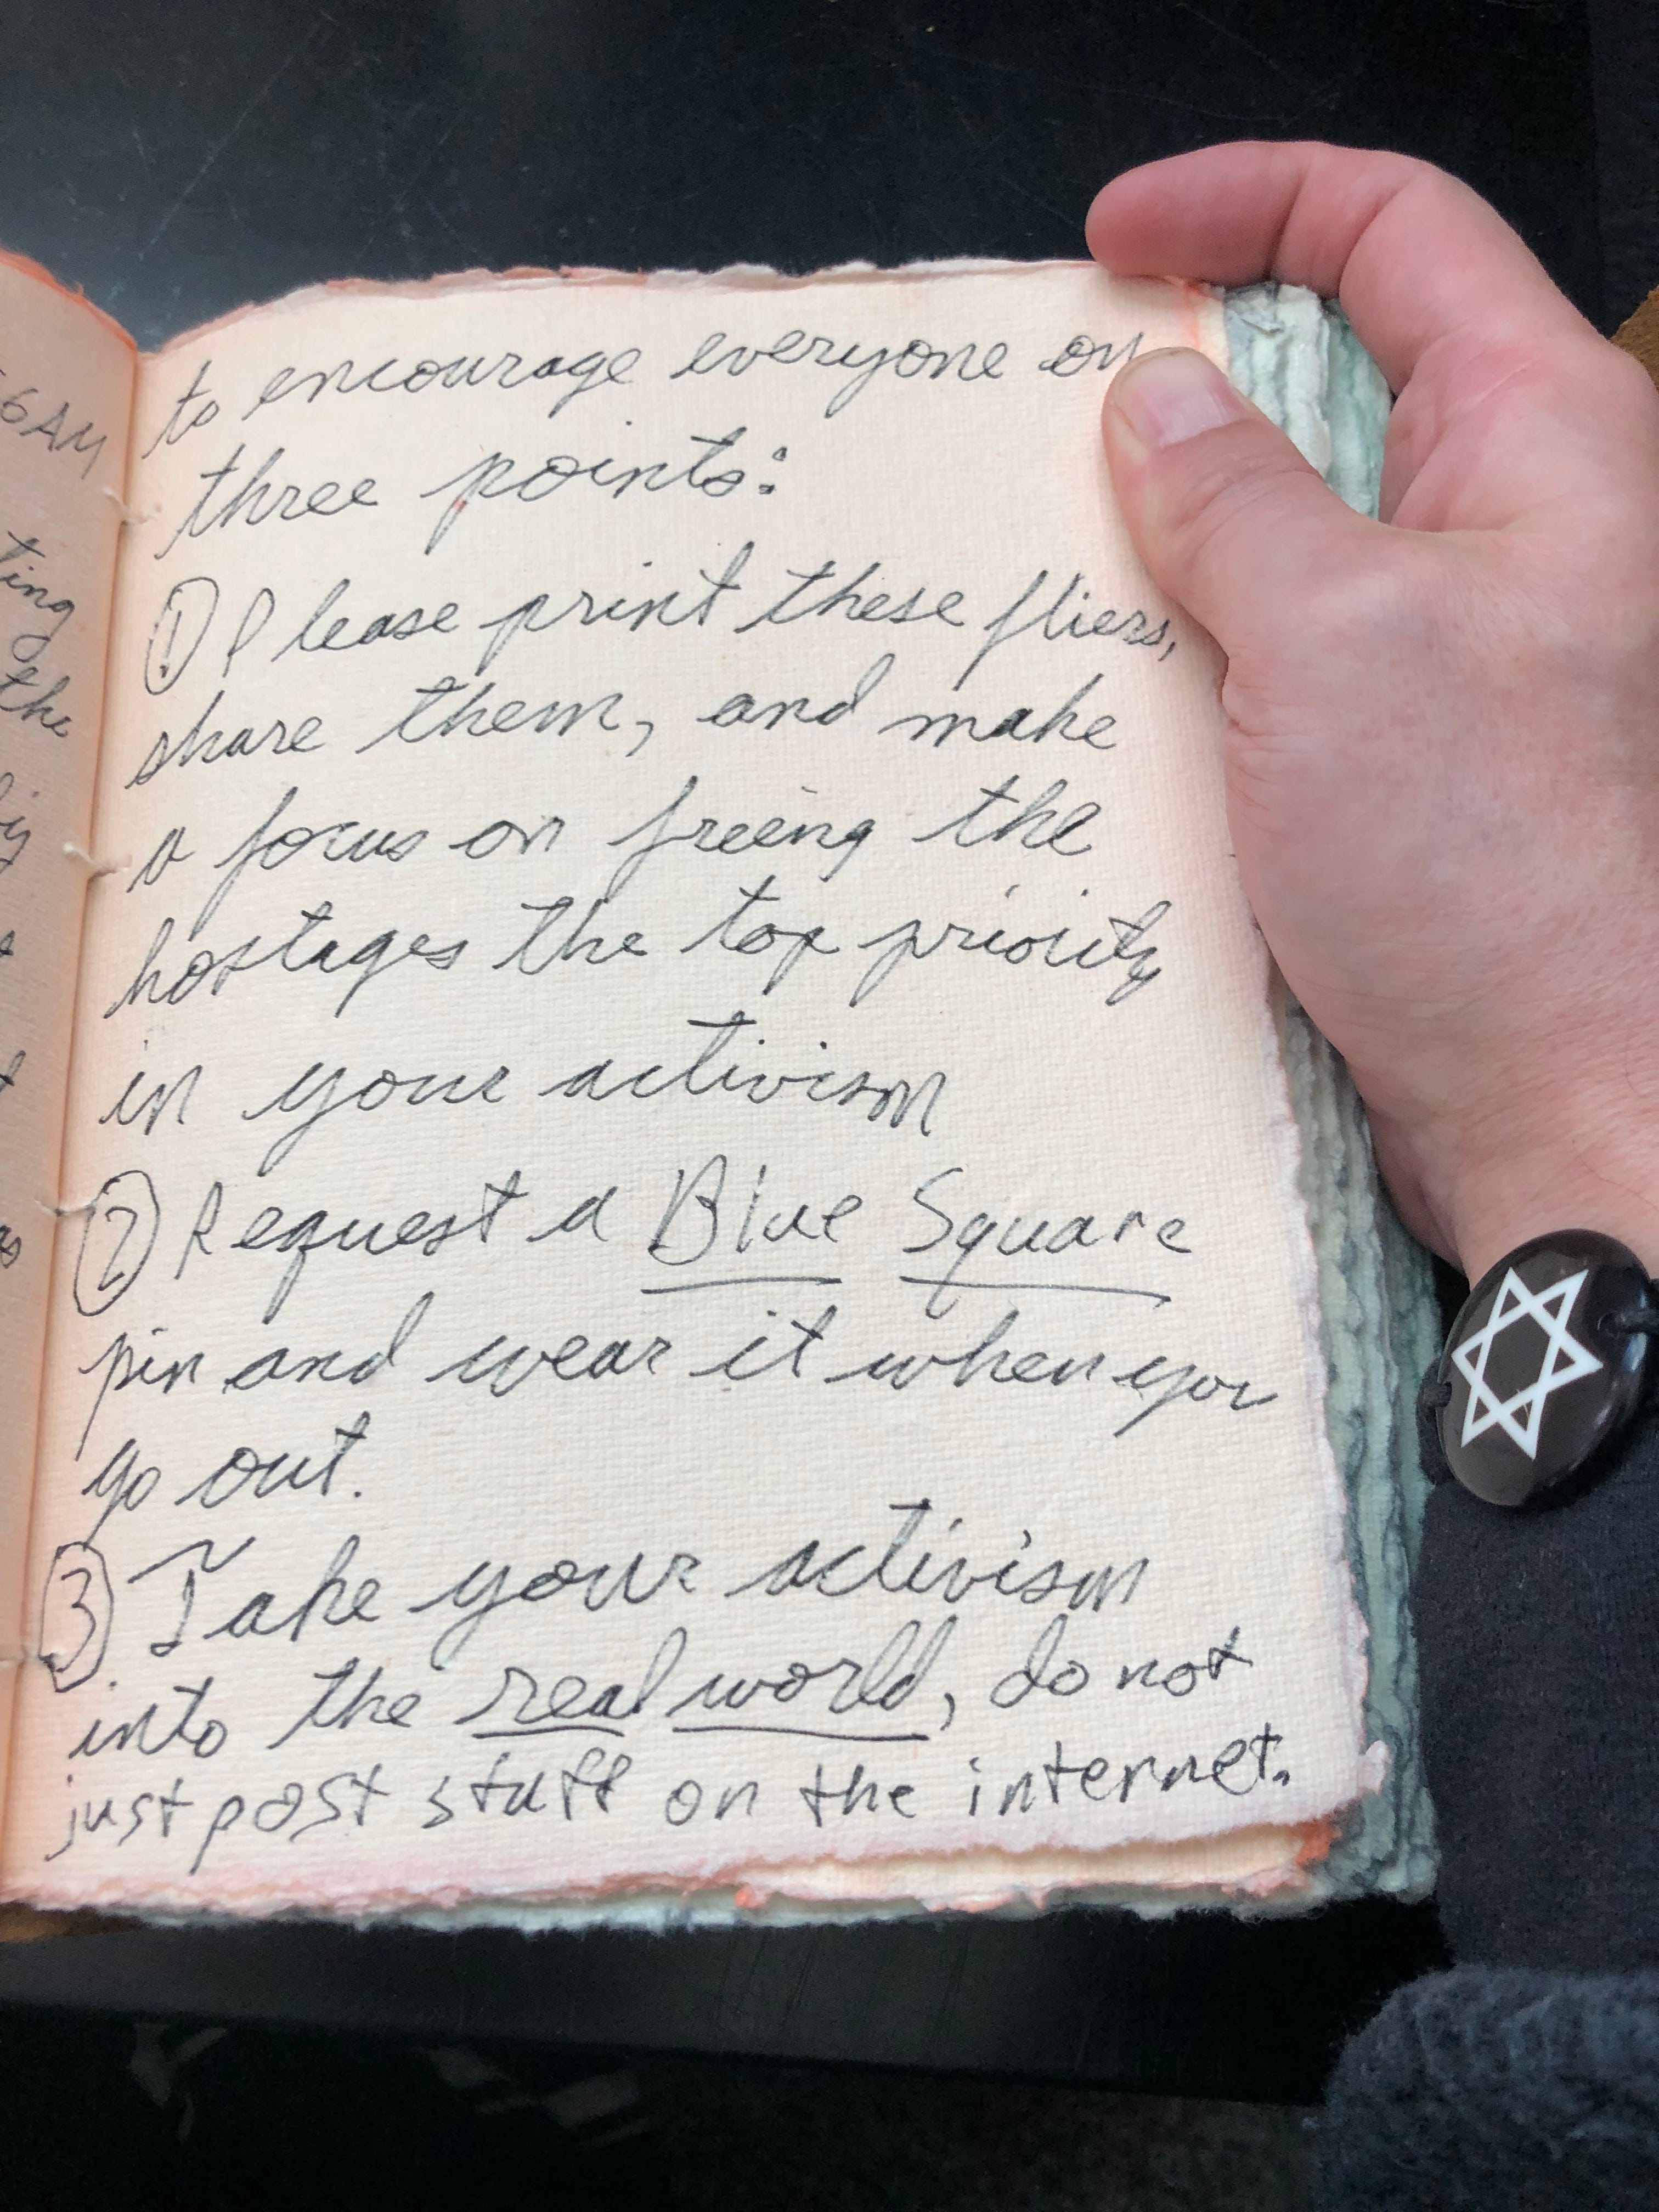 6AM
ting
the
to encourage everyone on
three points:
① Please print these fliers,
share them, and make
a focus on freeing the
hostages the top priority
in your activism
② Request a Blue Square
pin and wear it when you
go out.
③ Take your activism
into the real world, do not
just post stuff on the internet.